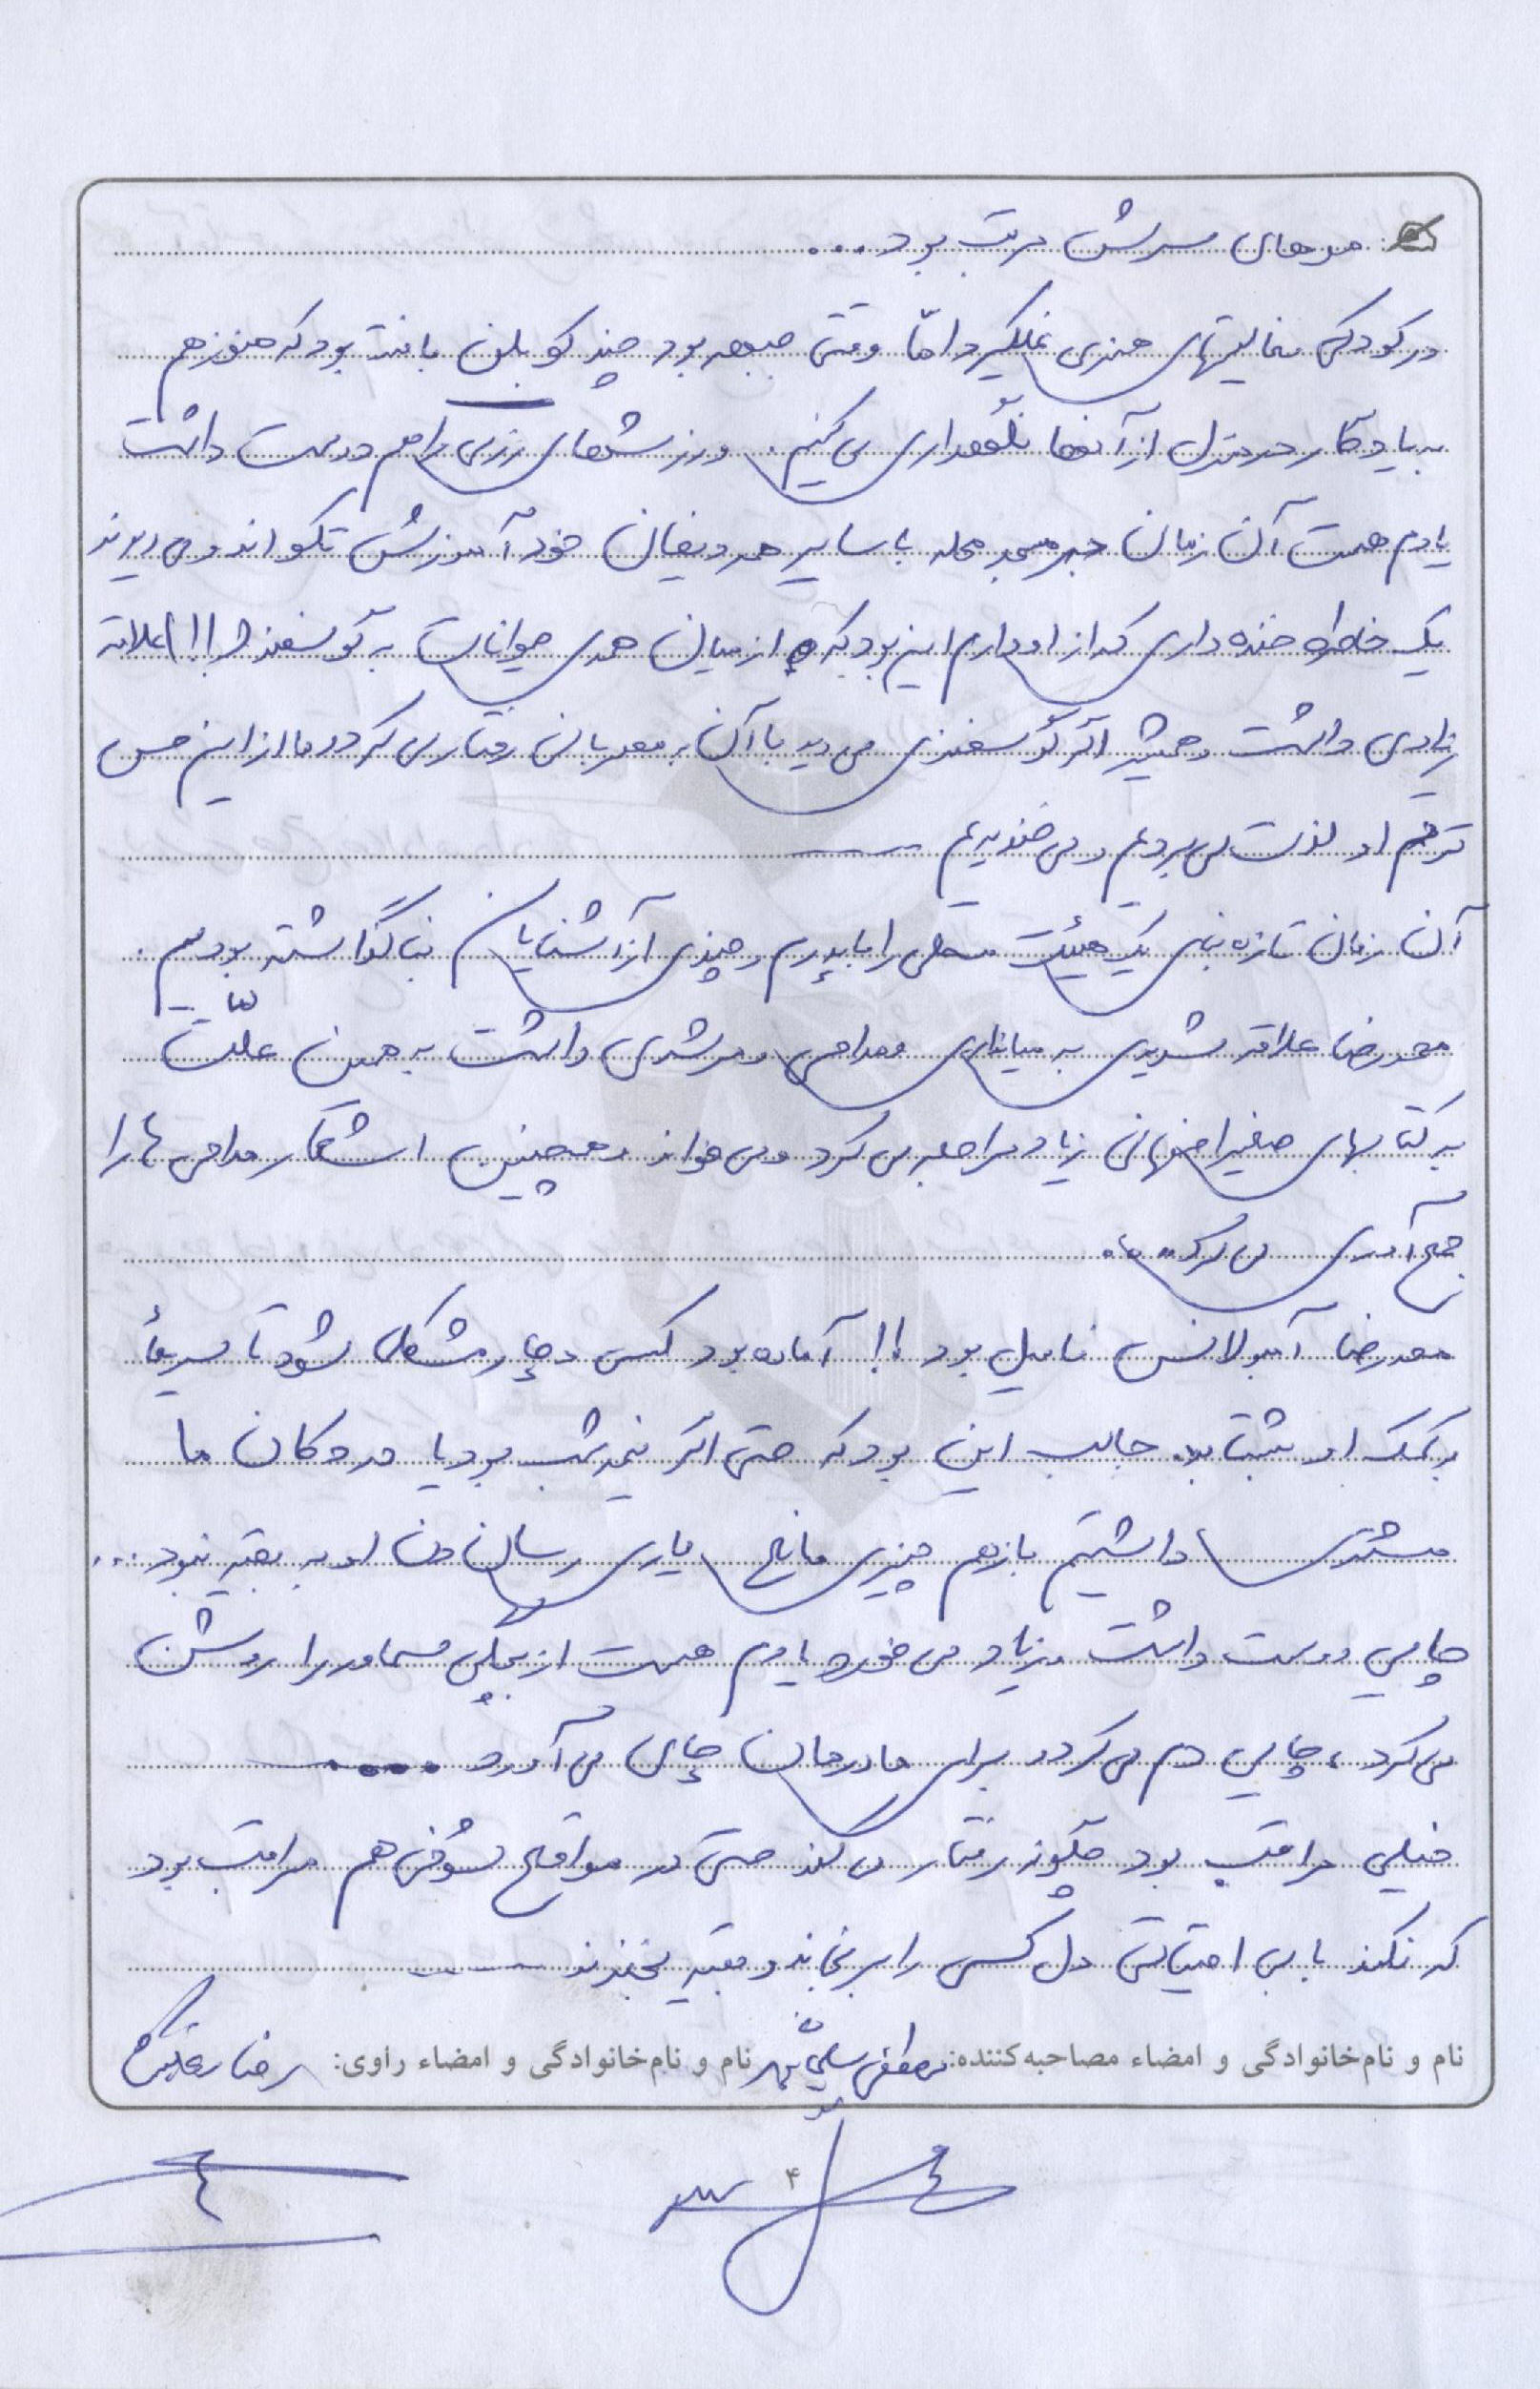 موهای سرش مرتب بود ...
در کودکی فعالیتهای هنری نمی‌کرد امّا وقتی جبهه بود چند کوبلن بافت بود که هنوز هم
به یادگار در منزل از آنها نگهداری می کنیم. ورزشهای رزمی را هم دوست داشت
یادم هست آن زمان در مسجد محله با سایر هم ردیفان خود آموزش تکواندو می دیدند
یک خاطره خنده داری که از او دارم این بود که از میان همه ی حیوانات به گوسفند!! علاقه
زیادی داشت و همیشه اگر گوسفندی می دید با آن به مهربانی رفتار می کرد و ما از این حس
ترحم او لذت می بردیم و می خندیدیم
آن زمان تازه بنای یک هیئت محلی را با پدرم و چندی از آشنایان بنا گذاشته بودیم.
محمدرضا علاقه شدیدی به میانداری و مداحی و مرشدی داشت به همین علّت
به کتابهای صغیر اصفهانی زیاد مراجعه می کرد و می خواند و همچنین اشعار مداحی ها را
جمع آوری می کرد ...
محمدرضا آمبولانس فامیل بود!! آماده بود کسی دچار مشکل شود تا سریعاً
به کمک او بشتابد. جالب این بود که حتی اگر نیمه شب بود یا در دکان ما
مشتری داشتیم باز هم چیزی مانع یاری رساندن او به بقیه نبود ...
چایی دوست داشت و زیاد می خورد یادم هست از بچگی سماور را روشن
می کرد، چایی دم می کرد و برای مادرمان چای می آورد ....
خیلی مراقب بود چگونه رفتار می کند حتی در مواقع شوخی هم مراقب بود
که نکند با بی احتیاطی دل کسی را برنجاند و بقیه بخندند
نام و نام‌خانوادگی و امضاء مصاحبه‌کننده: مصطفی نام و نام‌خانوادگی و امضاء راوی: رضا
۴